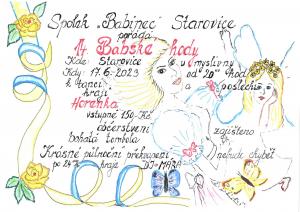 Spolek „Babinec" Starovice
pořádá
14. Babské hody
Kde: Starovice "u myslivny"
Kdy: 17.6.2023 od "20" hod
k tanci a poslechu
hraje
Horenka
vstupné 150,-Kč
občerstvení zajištěno
bohatá tombola nebude chybět
Krásné půlnoční překvapení
po 24 h. hraje DJ-MÁRA